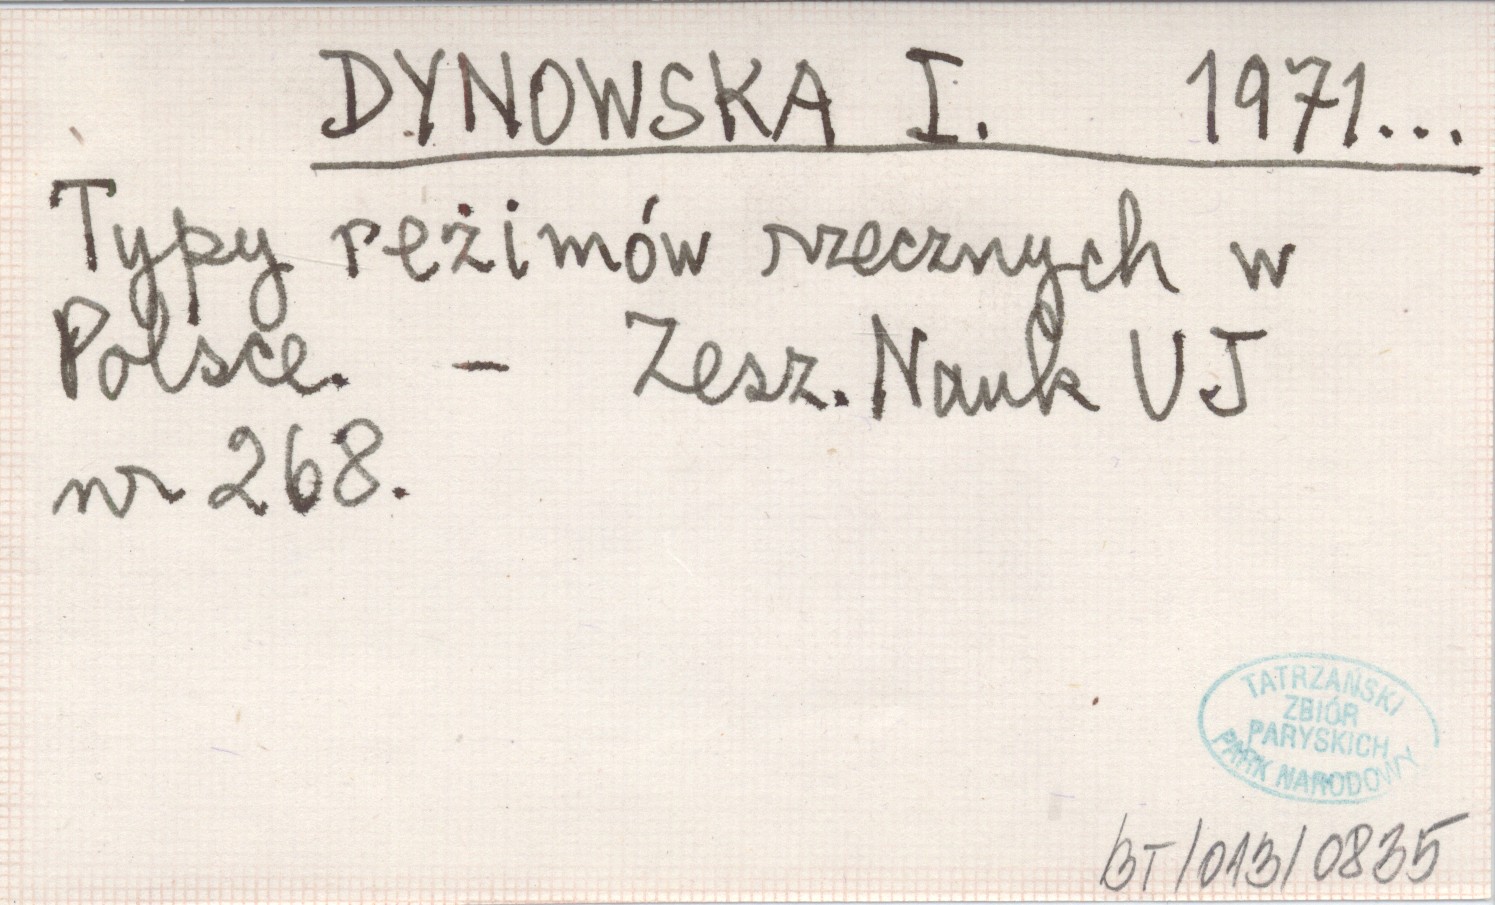 DYNOWSKA I. 1971...
Typy reżimów rzecznych w
Polsce. — Zesz. Nauk UJ
nr 268.
TATRZAŃSKI
ZBIÓR
PARYSKICH
PARK NARODOWY
BT/013/0835